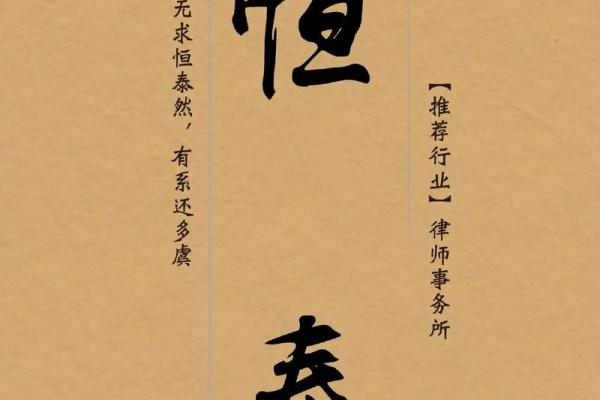 【推荐行业】律师事务所
恒泰
无求恒泰然，有系还多虞